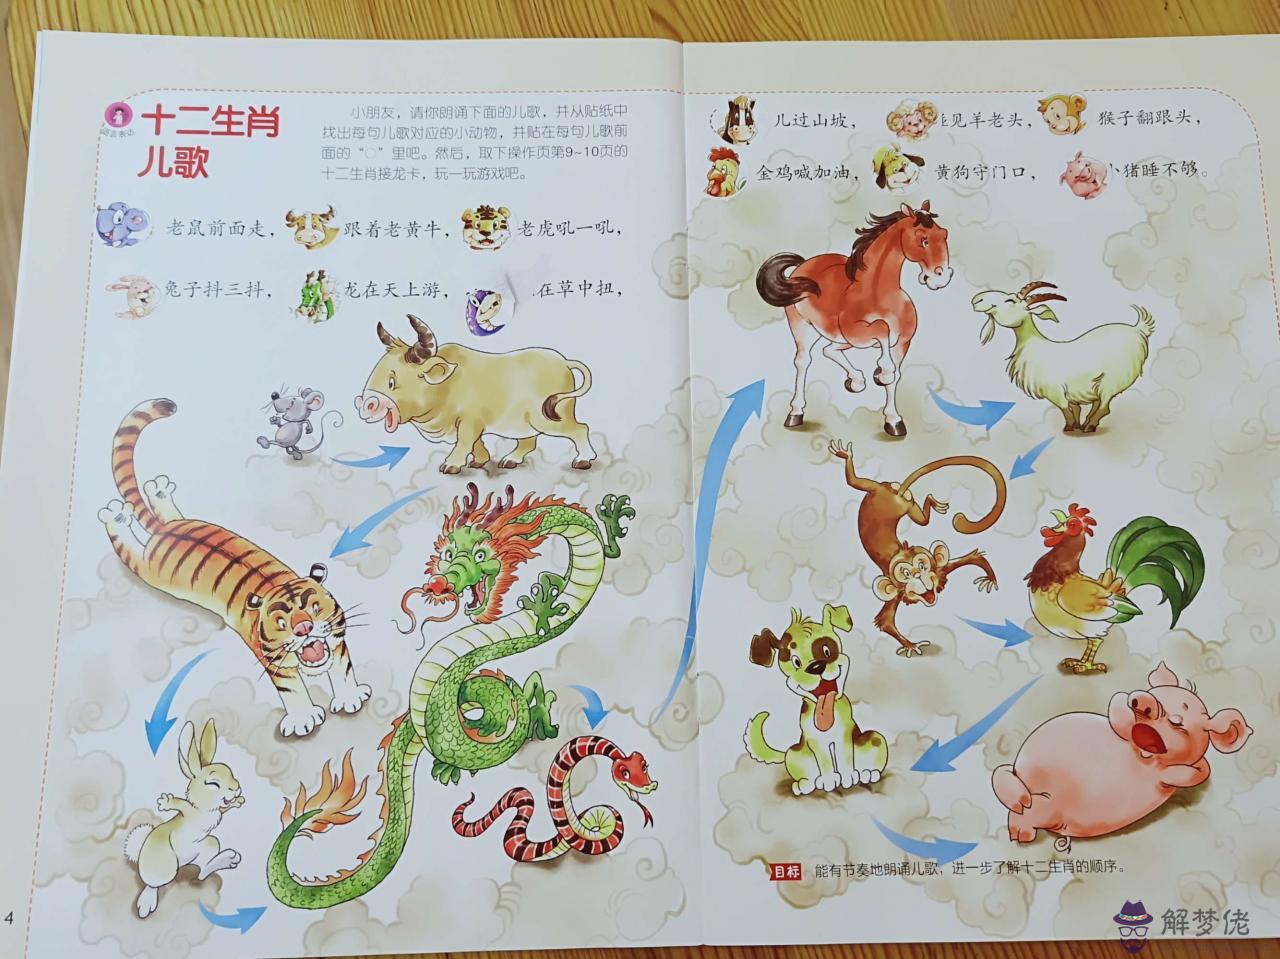 语言表达
十二生肖
儿歌
小朋友，请你朗诵下面的儿歌，并从贴纸中
找出每句儿歌对应的小动物，并贴在每句儿歌前
面的“○”里吧。然后，取下操作页第9~10页的
十二生肖接龙卡，玩一玩游戏吧。
老鼠前面走，跟着老黄牛，老虎吼一吼，
兔子抖三抖，龙在天上游，在草中扭，
儿过山坡，见羊老头，猴子翻跟头，
金鸡喊加油，黄狗守门口，小猪睡不够。
目标 能有节奏地朗诵儿歌，进一步了解十二生肖的顺序。
4
解梦佬